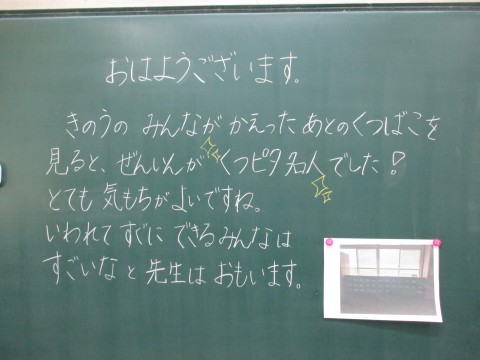 おはようございます。
きのうの みんなが かえった あとの くつばこを
見ると、ぜんいんが くつピタ名人でした!
とても 気もちが よいですね。
いわれて すぐに できる みんなは
すごいな と 先生は おもいます。